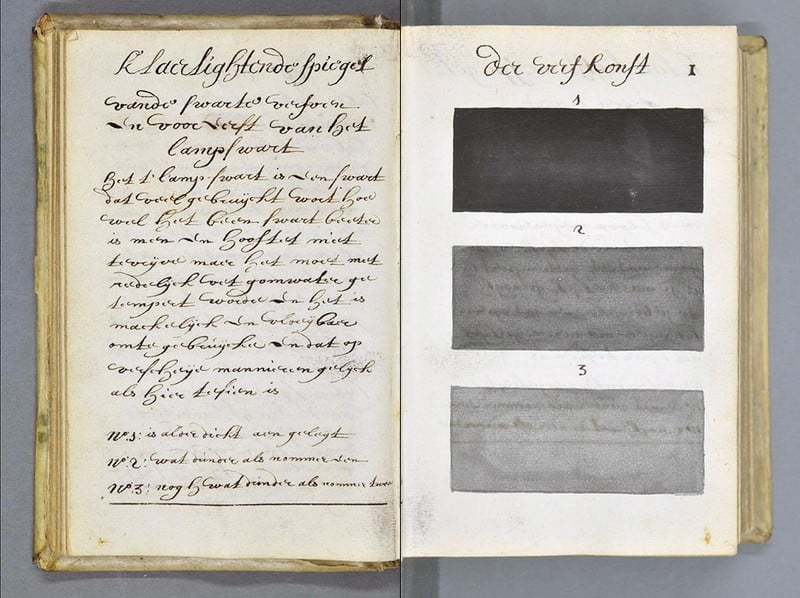 klaerlightende spiegel
vande swarte verfven
en voor eerst van het
lampswart
het t lamp swart is een swart
dat veel gebruijckt wort hoe
wel het been swart beeter
is men en hooftet niet
tevrijve maer het moet met
redelijck vet gomwater ge
tempert worde en het is
mackelijck en vloeijbaer
omte gebruijcke en dat op
verscheije mannieren gelijck
als hier tesien is
No 1: is alder dickt aen geleijt
No 2: wat dunder als nommer een
No 3: nog h wat dunder als nommer twee
der verf konst
1
1
2
3